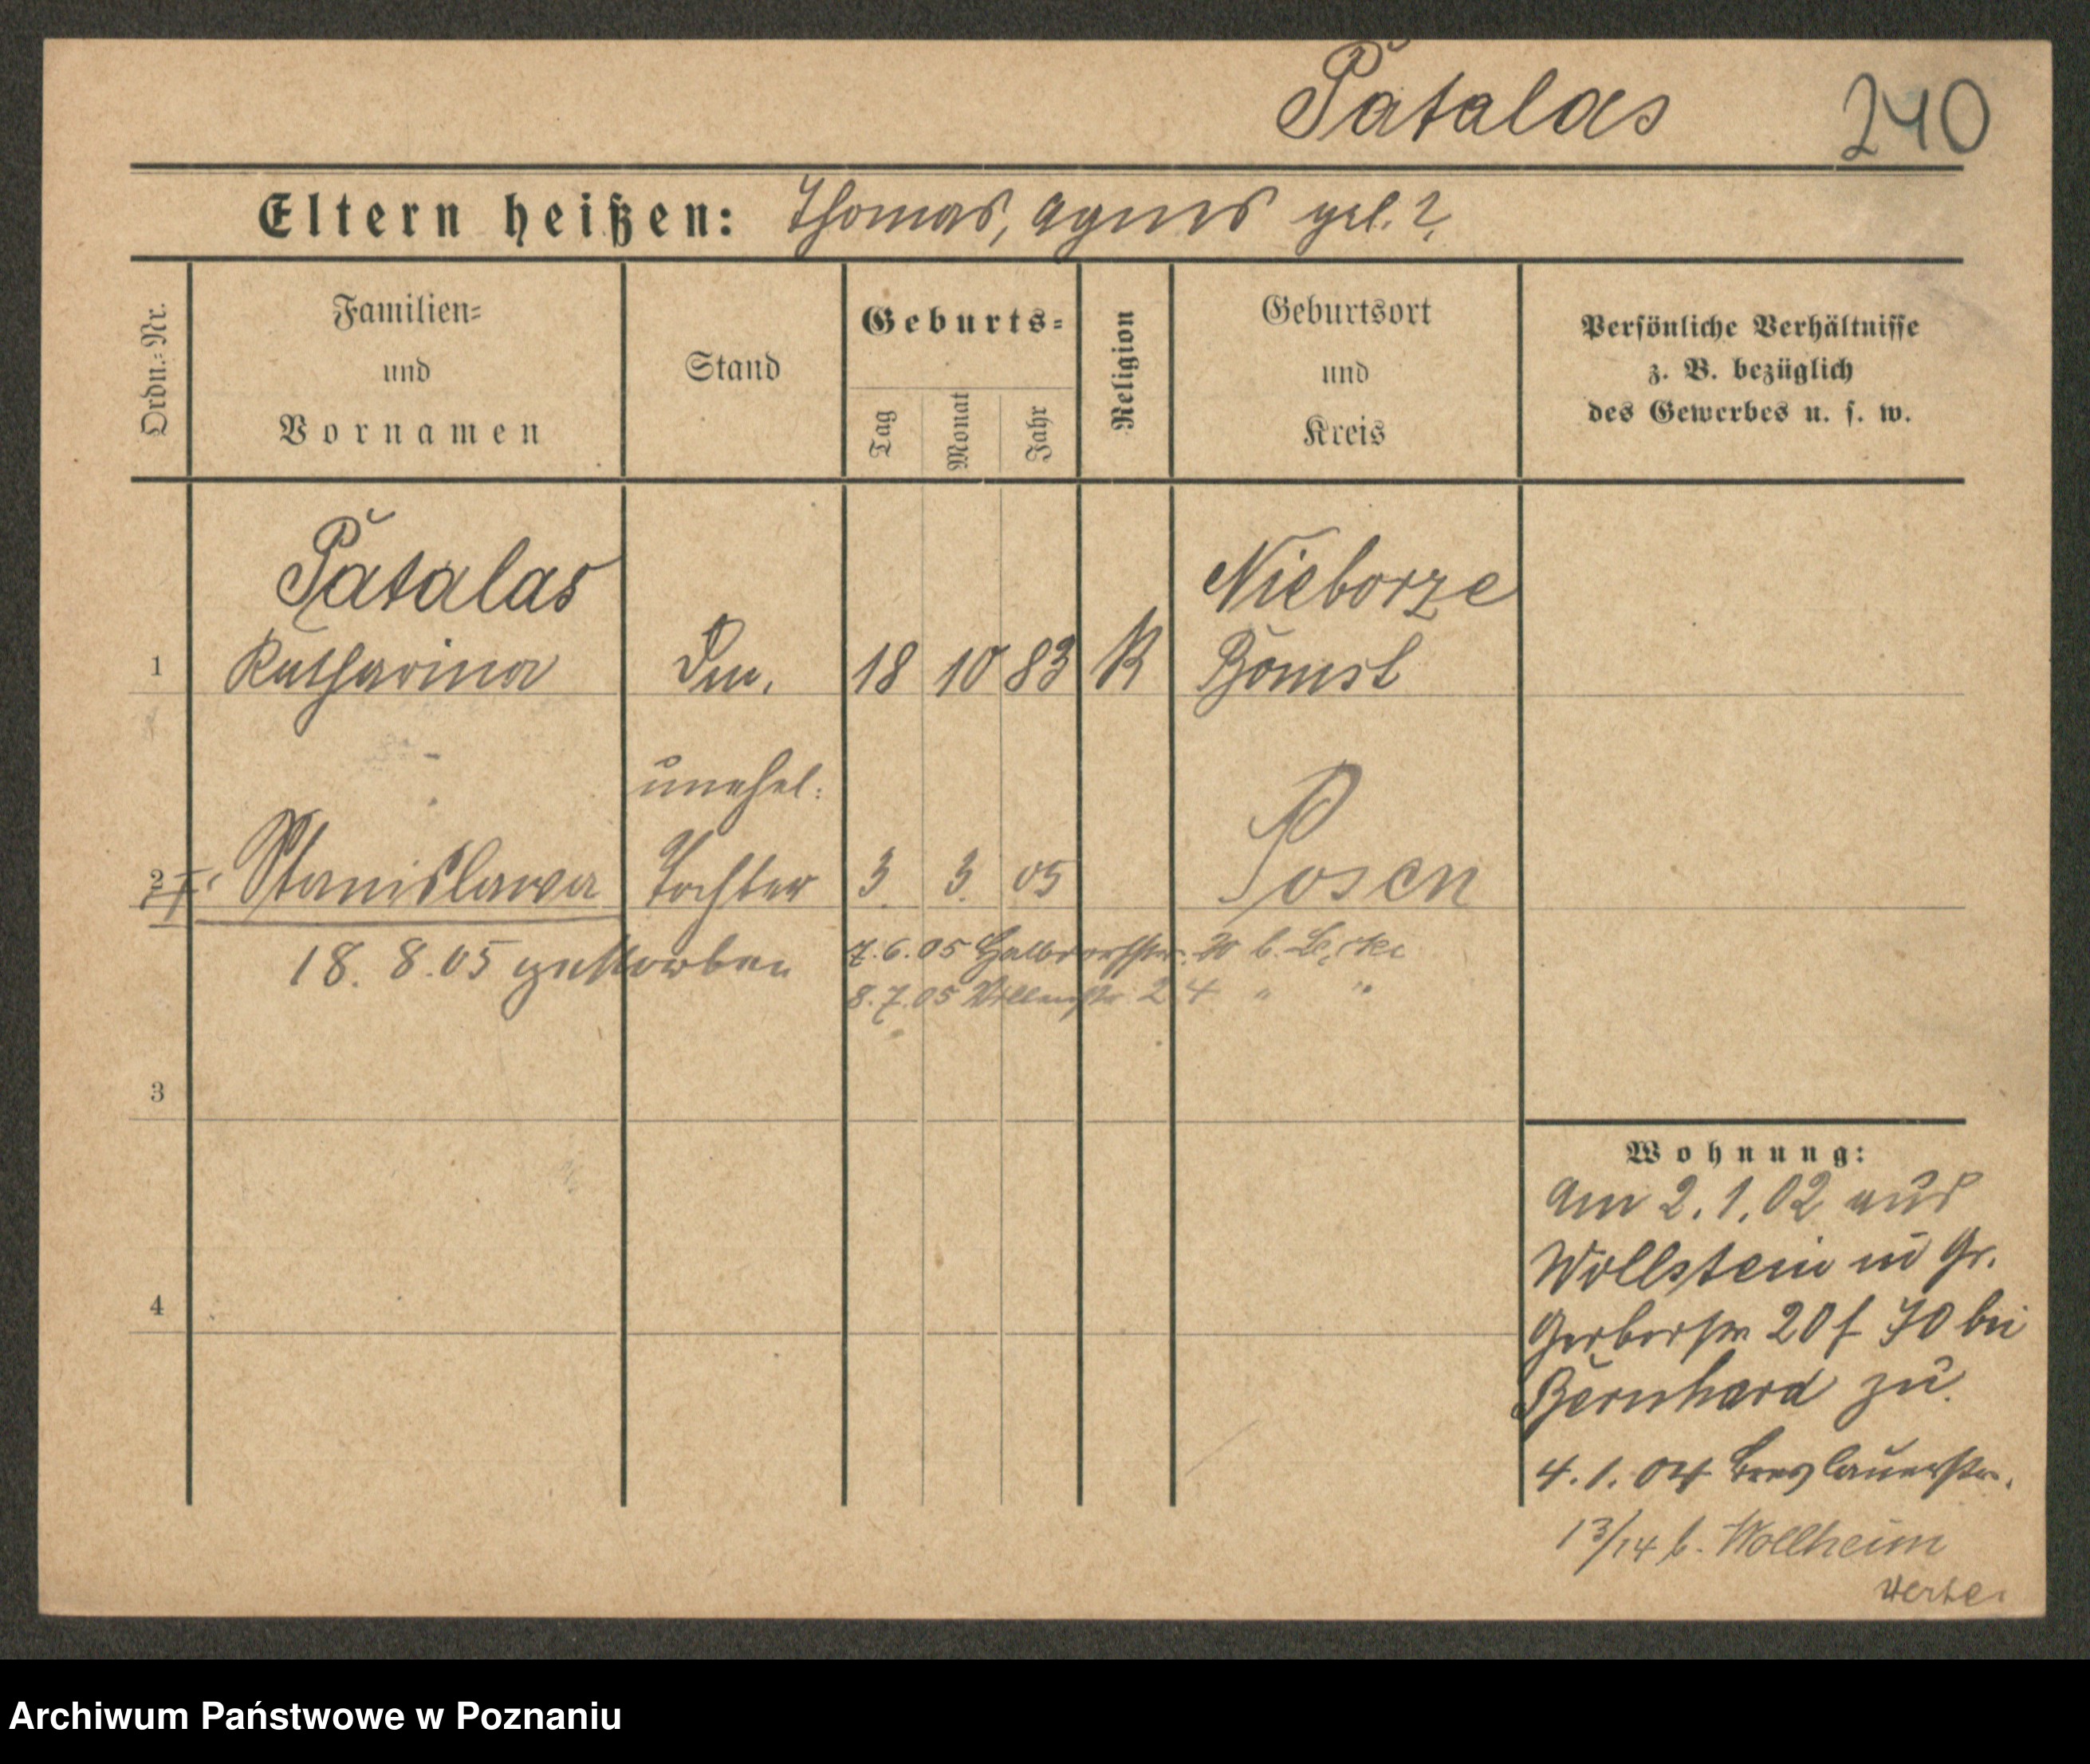 Patalas 240
Eltern heißen: Thomas, Agnes gel. ?
Ordn.-Nr.
Familien-
und
Vornamen
Stand
Geburts-
Tag
Monat
Jahr
Religion
Geburtsort
und
Kreis
Persönliche Verhältnisse
z. B. bezüglich
des Gewerbes u. s. w.
Patalas Nieborze
1 Katharina 18 10 83 K Bomst
unehel:
2 Stanislawa Tochter 3. 3. 05 Posen
18. 8. 05 gestorben
7. 6. 05 Halbdorfstr. 20 b.
8. 7. 05 24 " "
3
4
Wohnung:
Am 2. 1. 02 aus
Wollstein in Gr.
Gerberstr 20 f 70 bei
Bernhard zu.
4. 1. 04 Breslauerstr.
13/14 b. Wollheim
Archiwum Państwowe w Poznaniu